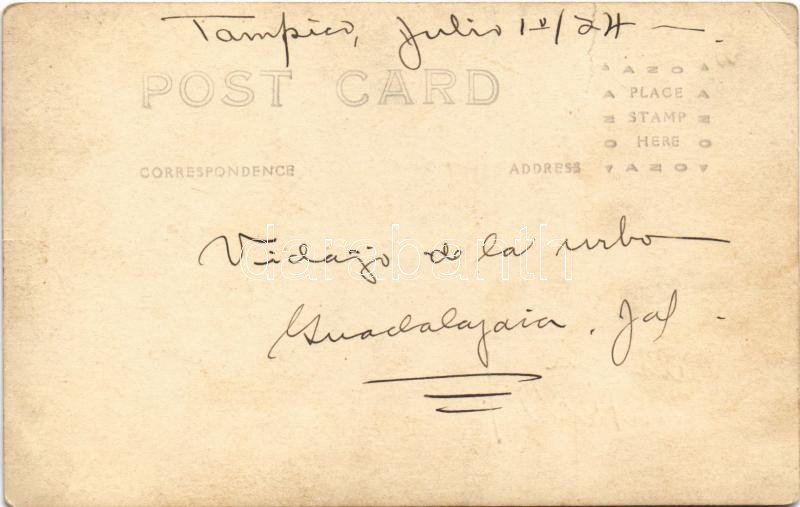 Tampico, Julio 1º/24 —.
POST CARD
AZOA
PLACE
STAMP
HERE
AZOA
CORRESPONDENCE
ADDRESS
de la urbe
Guadalajara. Jal.
darabanth